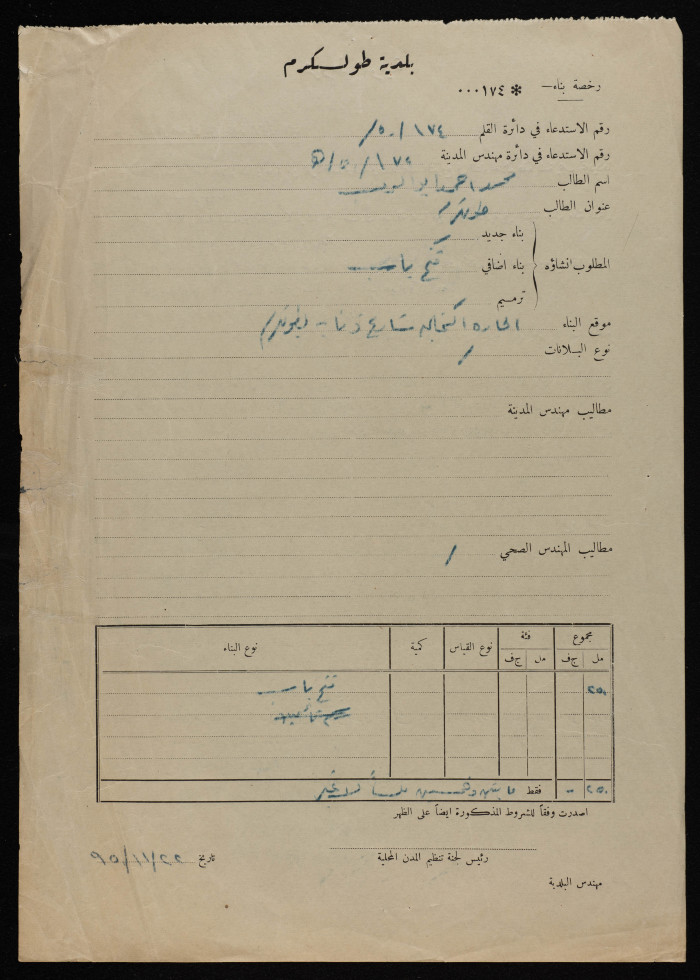 بلدية طولكرم
رخصة بناء— * ٠٠٠١٧٤
رقم الاستدعاء في دائرة القلم ١٧٤/٥٠/
رقم الاستدعاء في دائرة مهندس المدينة ١٧٤/٥٠/
اسم الطالب محمد احمد
عنوان الطالب طولكرم
بناء جديد
المطلوب انشاؤه بناء اضافي فتح باب
ترميم
موقع البناء الحاره شارع ذنابه بطولكرم
نوع البلانات /
مطاليب مهندس المدينة
مطاليب المهندس الصحي /
مجموع فئة نوع القياس كمية نوع البناء
مل ج ف مل ج ف
٢٥٠ فتح باب
٢٥٠ -- فقط مايتين وخمسين ملساً لا غير
اصدرت وفقاً للشروط المذكورة ايضاً على الظهر
رئيس لجنة تنظيم المدن المحلية
تاريخ ٩٥٠/١١/٢٢
مهندس البلدية